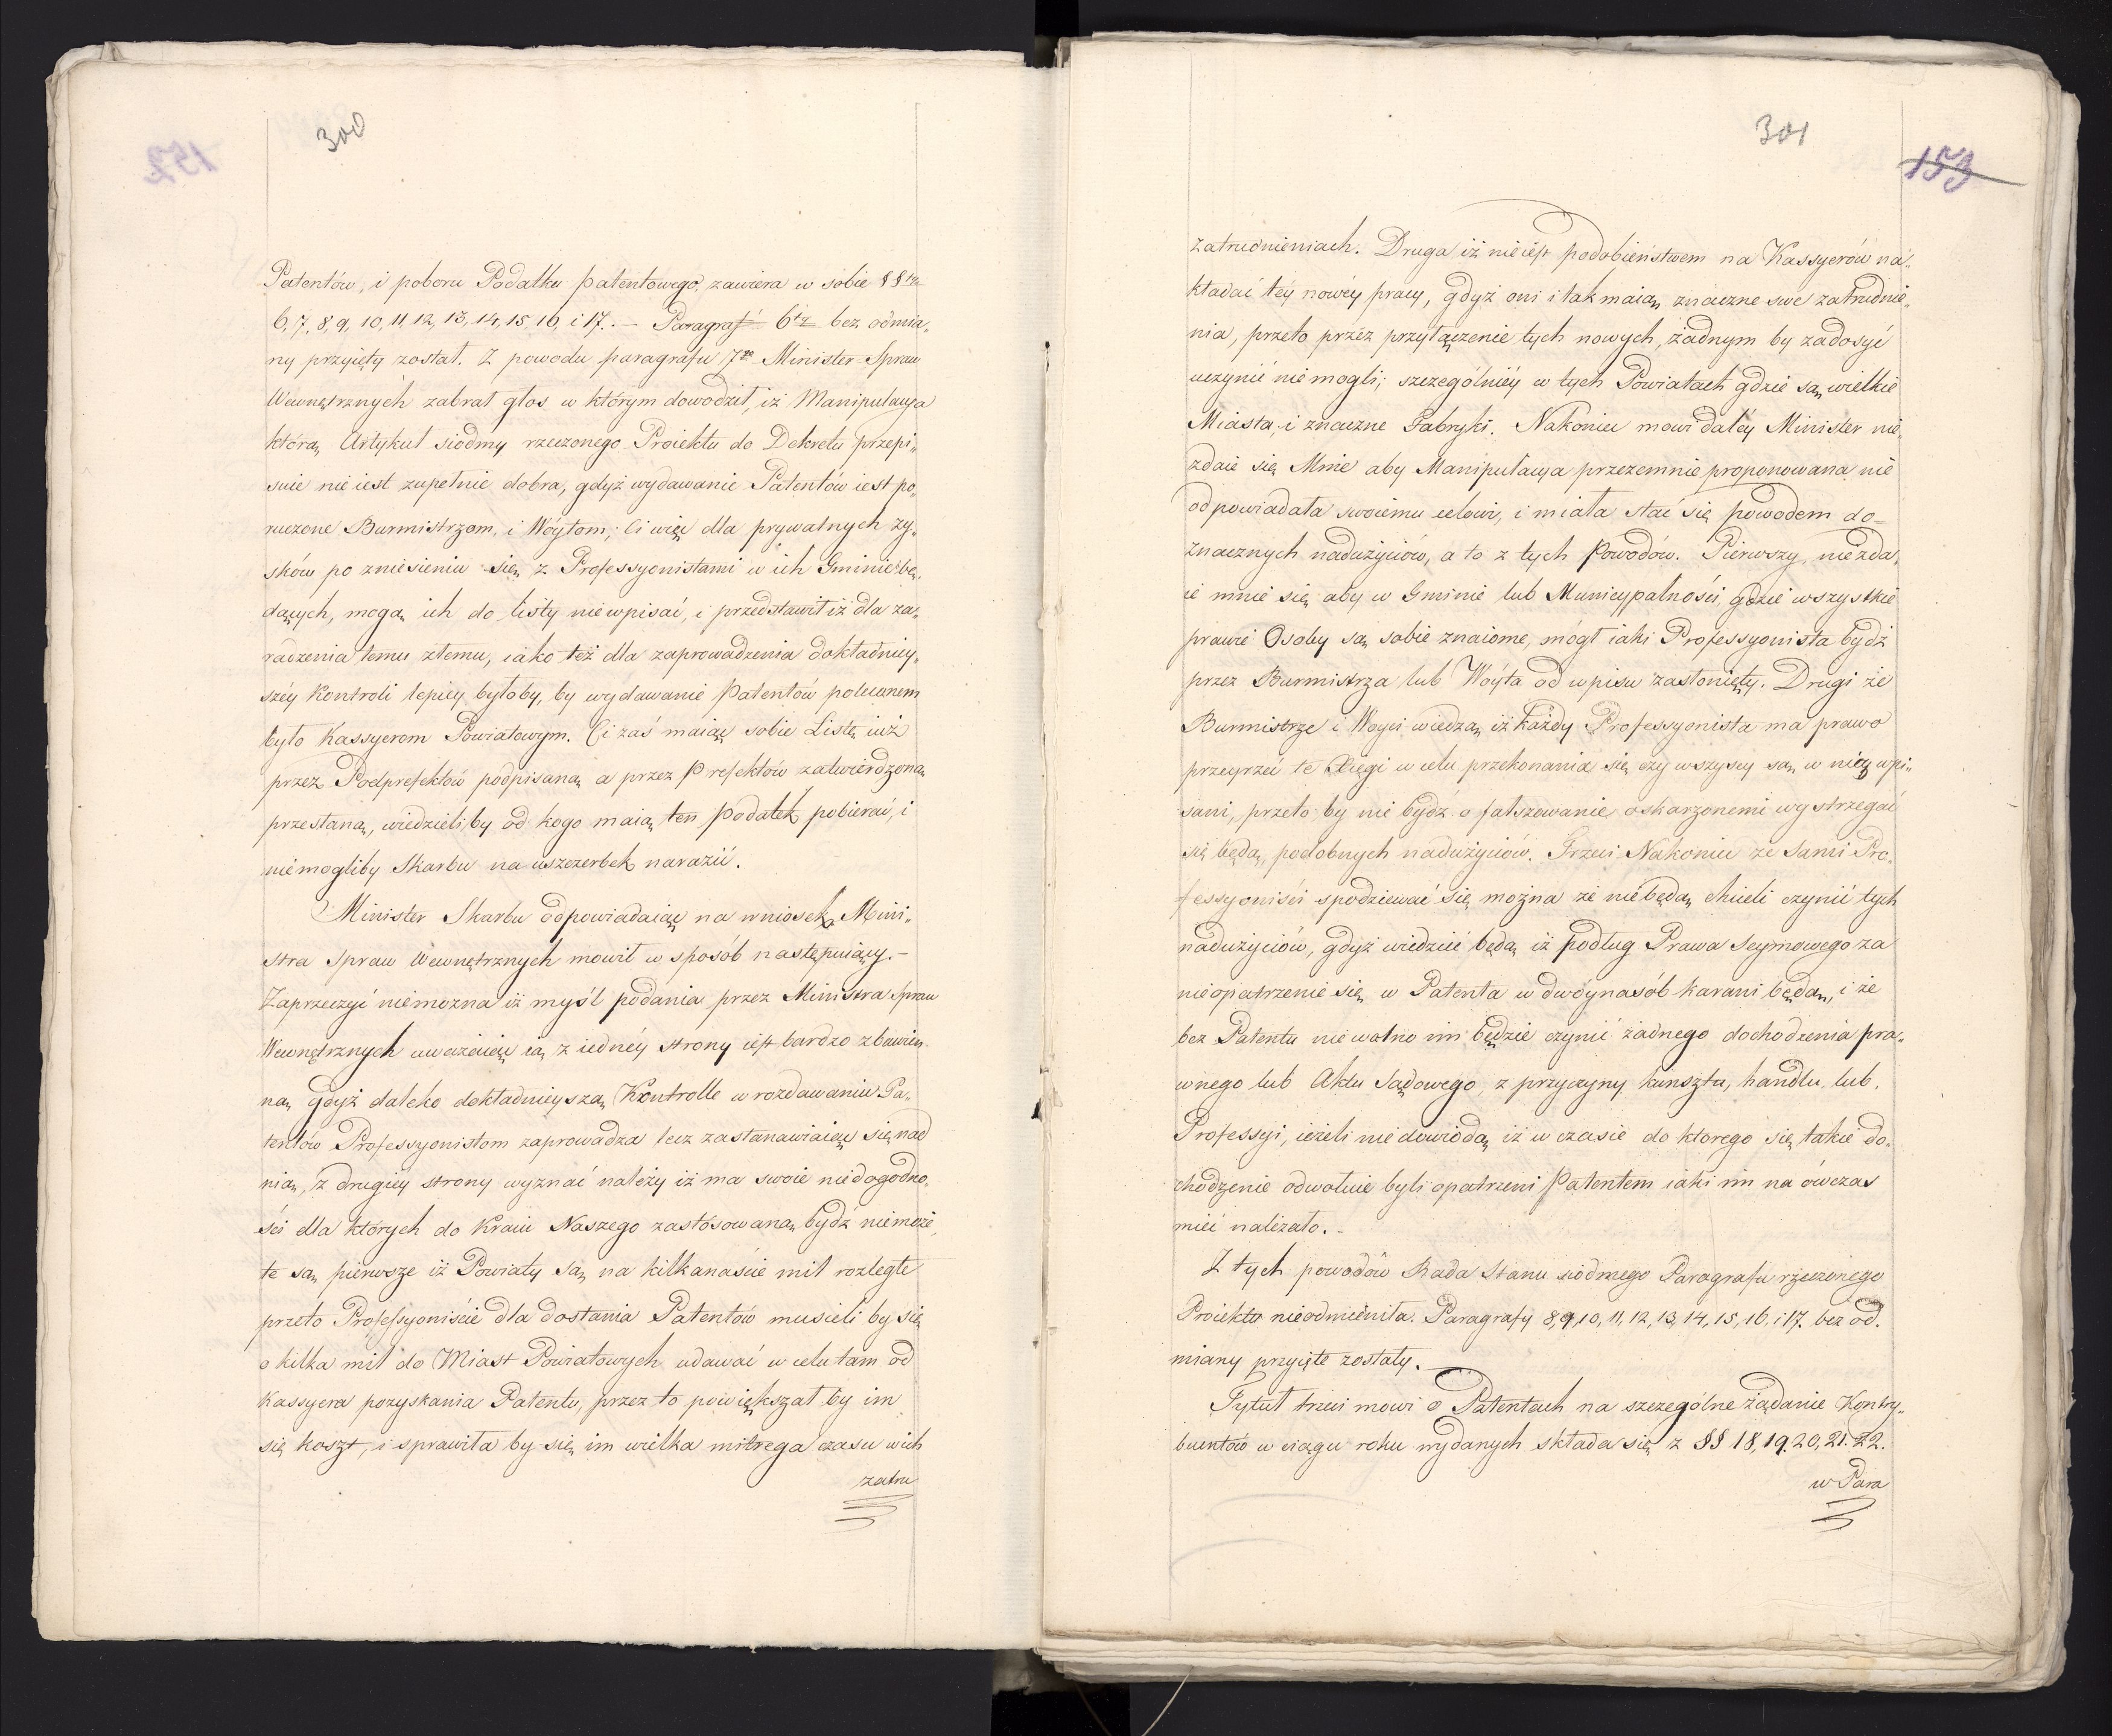 300
152
Patentów, i poboru Podatku patentowego, zawiera w sobie §§
6, 7, 8, 9, 10, 11, 12, 13, 14, 15, 16, i 17. — Paragraf 6ty bez odmia„
ny przyięty został. Z powodu paragrafu 7go Minister Spraw
Wewnętrznych zabrał głos w którym dowodził, iż Manipulacya
którą Artykuł siódmy rzeczonego Proiektu do Dekretu przepi„
suie nie iest zupełnie dobra, gdyż wydawanie Patentów iest po„
ruczone Burmistrzom, i Wóytom; Ci więc dla prywatnych zy„
sków po zniesieniu się z Professyonistami w ich Gminie bę„
dących, mogą ich do listy nie wpisać, i przedstawił iż dla za„
radzenia temu złemu, iako też dla zaprowadzenia dokładniey„
széy Kontroli lepiey byłoby, by wydawanie Patentów poleconem
było Kassyerom Powiatowym. Ci zaś maiąc sobie Listę iuż
przez Podprefektów podpisaną a przez Prefektów zatwierdzoną
przesłaną, wiedzieliby od kogo maią ten podatek pobierać, i
niemogliby Skarbu na uszczerbek narazić.
Minister Skarbu odpowiadaiąc na wniosek Mini„
stra Spraw Wewnętrznych mowił w sposób następuiący. —
Zaprzeczyć niemożna iż myśl podania przez Ministra Spraw
Wewnętrznych uważaiąc ią z iednéy strony iest bardzo zbawien„
ną gdyż daleko dokładnieyszą Kontrolle w rozdawaniu Pa„
tentów Professyonistom zaprowadza lecz zastanawiaiąc się nad
nią, z drugiéy strony wyznać należy iż ma swoie niedogodno„
ści dla których do Kraiu Naszego zastósowaną bydź niemoże,
te są pierwsze iż Powiaty są na kilkanaście mil rozległe
przeto Professyoniście dla dostania Patentów musieli by się
o kilka mil do Miast Powiatowych udawać w celu tam od
Kassyera pozyskania Patentu, przez to powiększał by im
się koszt, i sprawiła by się im wielka mitręga czasu w ich
zatru
301
153
zatrudnieniach. Druga iż nie iest podobieństwem na Kassyerów na„
kładać téy nowéy pracy, gdyż oni i tak maią znaczne swe zatrudnie„
nia, przeto przez przyłączenie tych nowych, żadnym by zadosyć
uczynić niemogli; szczególniéy w tych Powiatach gdzie są wielkie
Miasta, i znaczne Fabryki. Nakoniec mowi daléy Minister nie
zdaie się Mnie aby Manipulacya przezemnie proponowana nie
odpowiadała swoiemu celowi, i miała stać się powodem do
znacznych nadużyciów, a to z tych Powodów. Pierwszy, nie zda„
ie mnie się aby w Gminie lub Municypalności, gdzie wszystkie
prawie Osoby są sobie znaiome, mógł iaki Professyonista bydź
przez Burmistrza lub Wóyta od wpisu zasłonięty. Drugi że
Burmistrze i Woyci wiedzą iż każdy Professyonista ma prawo
przeyrzeć te Xięgi w celu przekonania się czy wszyscy są w niéy wpi„
sani, przeto by nie bydź o fałszowanie oskarzonemi wystrzegać
się będą podobnych nadużyciów. Trzeci Nakoniec że Sami Pro„
fessyoniści spodziewać się można że nie będą chcieli czynić tych
nadużyciów, gdyż wiedzieć będą iż podług Prawa Seymowego za
nieopatrzenie się w Patenta w dwóynasób karani będą, i że
bez Patentu nie wolno im będzie czynić żadnego dochodzenia pra„
wnego lub Aktu Sądowego z przyczyny kunsztu, handlu, lub
Professyi, ieżeli nie dowiodą iż w czasie do ktorego się takie do„
chodzenie odwołuie byli opatrzeni Patentem iaki im na ówczas
mieć należało. —
Z tych powodów Rada Stanu siódmego Paragrafu rzeczonego
Proiektu nieodmieniła. Paragrafy 8, 9, 10, 11, 12, 13, 14, 15, 16, i 17. bez od„
miany przyięte zostały. —
Tytuł trzeci mowi o Patentach na szczególne żądanie Kontry„
buentów w ciągu roku wydanych składa się z §§ 18, 19. 20, 21. 22.
w Para